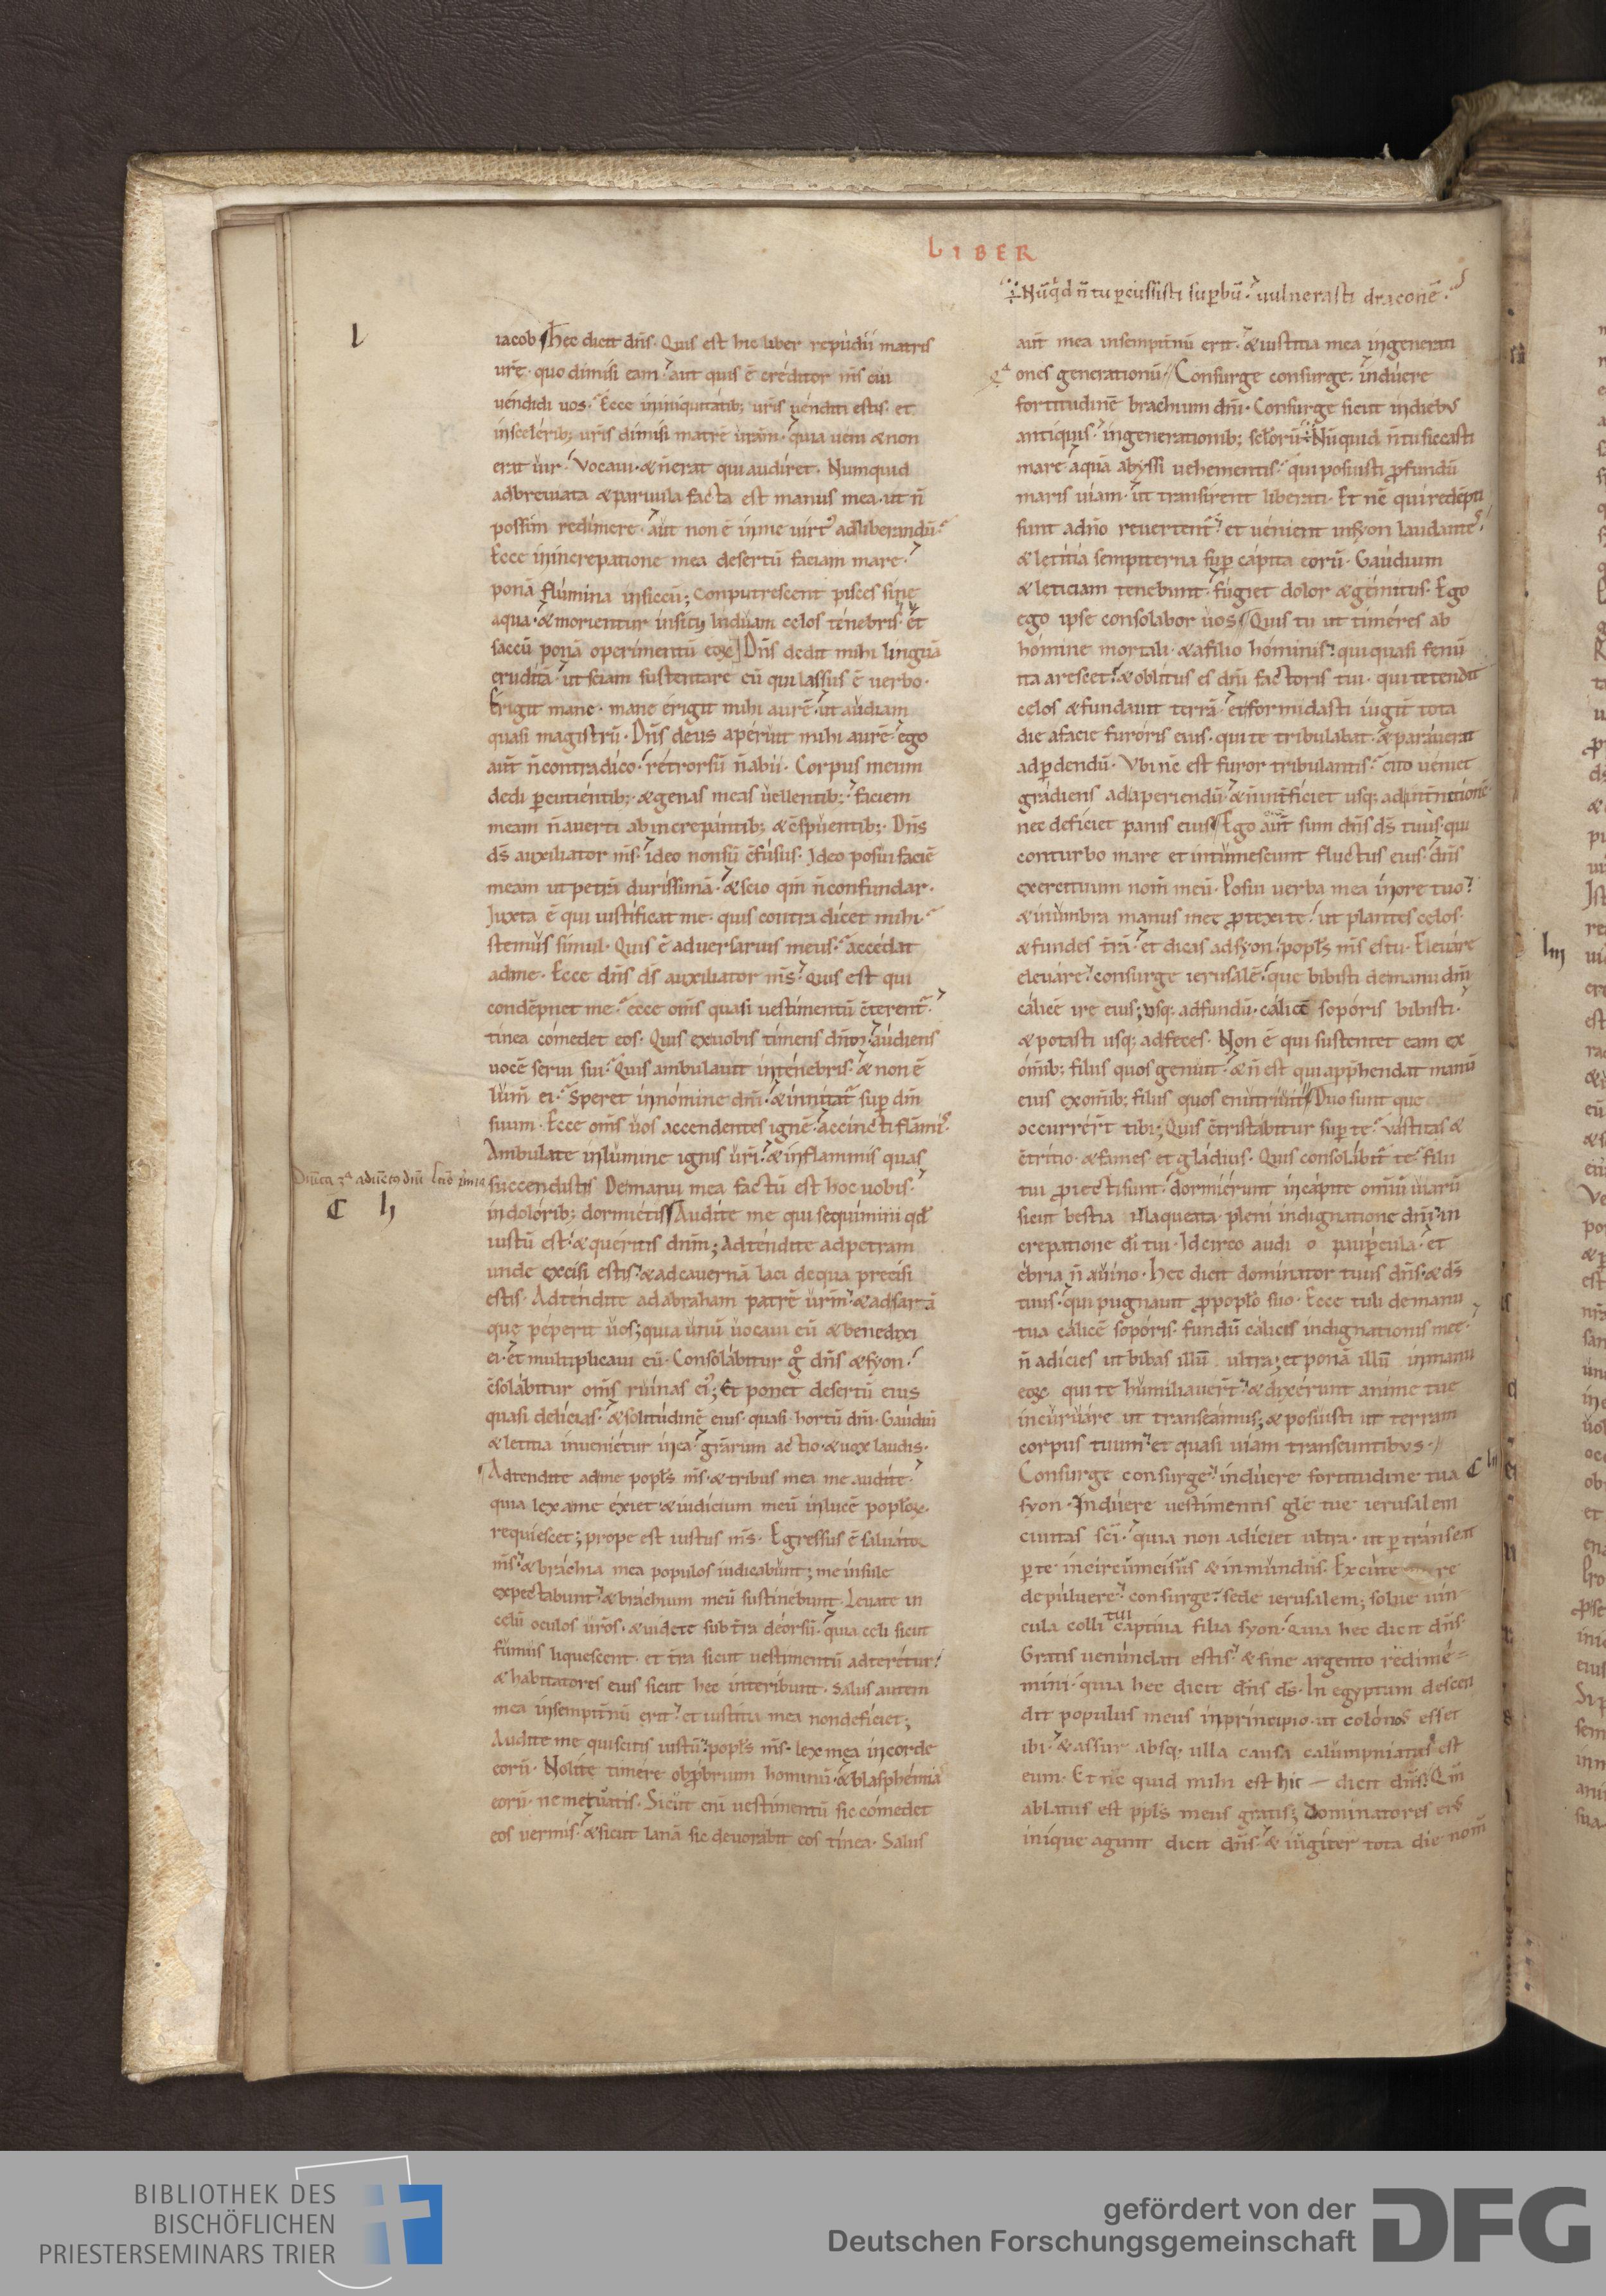 LIBER
Nūqd n̄ tu ꝑcussisti suꝑbū· uulnerasti draconē·
l
iacob Hec dicit dn̄s· Quis est hic liber repudii matris
ur̄ę· quo dimisi eam· aut quis ē creditor m̄s cui
uendidi uos· Ecce in iniquitatib; ur̄is uenditi estis· et
insceleribꝫ ur̄is dimisi matrē ur̄am· quia ueni & non
erat uir· Vocaui· & n̄ erat qui audiret· Numquid
adbreuiata & paruula facta est manus mea· ut n̄
possim redimere· aut non ē inme uirt᾽ ad liberandū·
Ecce inincrepatione mea desertū faciam mare·
ponā flumina insiccū; Conputrescent pisces sine
aqua· & morientur insiti; Induam celos tenebris· et
saccū ponā operimentū eoꝝ Dn̄s dedit mihi linguā
eruditā· ut sciam sustentare eū qui lassus ē uerbo·
Erigit mane· mane erigit mihi aurē· ut audiam
quasi magistrū· Dn̄s deus aperuit mihi aurē· ego
aut̄ n̄ contradico· retrorsū n̄ abii· Corpus meum
dedi ꝑcutientib; & genas meas uellentib;· faciem
meam n̄ auerti ab increpantib; & c̄spuentib;· Dn̄s
ds̄ auxiliator m̄s· ideo nonsū c̄fusus· Ideo posui faciē
meam ut petrā durissimā· & scio qm̄ n̄ confundar·
Juxta ē qui iustificat me· quis contra dicet mihi·
stemus simul· Quis ē aduersarius meus· accedat
adme· Ecce dn̄s ds̄ auxiliator m̄s· Quis est qui
condēpnet me· ecce om̄s quasi uestimentū c̄terent̄·
tinea comedet eos· Quis exuobis timens dn̄m· audiens
uocē serui sui· Quis ambulauit intenebris· & non ē
lum̄ ei· Speret innomine dn̄i· & innitat̄ suꝑ dm̄
suum· Ecce om̄s uos accendentes ignē· accincti flāmis
Ambulate inlumine ignis ur̄i· & inflammis quas
succendistis Demanu mea factū est hoc uobis·
C h
indolorib; dormietis Audite me qui sequimini qd̄
iustū est· & queritis dnm̄; Adtendite adpetram
unde excisi estis· & adcauernā laci dequa precisi
estis· Adtendite adabraham patrē ur̄m· & adsarrā
quę peperit uos; quia unū uocaui eū & benedixi
ei· et multiplicaui eū· Consolabitur g̊ dn̄s & syon·
c̄solabitur om̄s ruinas ei᾽; Et ponet desertū eius
quasi delicias· & solitudinē eius· quasi hortū dn̄i· Gaudiū
& letitia inuenietur in ea· grārum actio· & uox laudis·
Adtendite adme popl̄s m̄s· & tribus mea me audite·
quia lex ame exiet· & iudicium meū inlucē popl̄oꝝ·
requiescet; prope est iustus m̄s· Egressus ē saluator
m̄s· & brachia mea populos iudicabunt; me insule
expectabunt· & brachium meū sustinebunt· Leuate in
celū oculos ur̄os· & uidete sub tr̄a deorsū· quia celi sicut
fumus liquescent· et tr̄a sicut uestimentū adteretur·
& habitatores eius sicut hec interibunt· Salus autem
mea insempit̄nū erit· et iustitia mea nondeficiet;
Audite me quiscitis iustū· popl̄s m̄s· lex mea incorde
eorū· Nolite timere obꝓbrium hominū· & blasphemia
eorū· ne metuatis· Sicut enī uestimentū sic comedet
eos uermis· & sicut lanā sic deuorabit eos tinea· Salus
aut̄ mea insempit̄nū erit· & iustitia mea ingenerati
ones generationū· Consurge consurge· induere
fortitudinē brachium dn̄i· Consurge sicut indiebus
antiquis· ingenerationib; sc̄lorū· Nūquid n̄ tu siccasti
mare aquā abyssi uehementis· qui posuisti ꝓfundū
maris uiam· ut transirent liberati· Et nc̄ qui redēpti
sunt adn̄o reuertent̄· et uenient insyon laudantes
& letitia sempiterna suꝑ capita eorū· Gaudium
& leticiam tenebunt· fugiet dolor & gemitus· Ego
ego ipse consolabor uos Quis tu ut timeres ab
homine mortali· & afilio hominis· qui quasi fenū
ita arescet· & oblitus es dn̄i factoris tui· qui tetendit
celos & fundauit terrā· et formidasti iugit̄ tota
die afacie furoris eius· qui te tribulabat· & parauerat
adꝑdendū· Vbi nc̄ est furor tribulantis· cito ueniet
gradiens adaperiendū· & n̄ int̄ficiet usq; adint̄nitionē·
nec deficiet panis eius Ego aut̄ sum dn̄s ds̄ tuus· qui
conturbo mare et intumescunt fluctus eius· dn̄s
exercituum nom̄ meū· Posui uerba mea inore tuo·
& inumbra manus meę ꝓtexi te· ut plantes celos·
& fundes tr̄ā· et dicas adsyon· popl̄s m̄s estu· Eleuare
eleuare· consurge ierusalē· que bibisti demanu dn̄i
calicē irę eius; usq; adfundū· calicē soporis bibisti·
& potasti usq; adfeces· Non ē qui sustentet eam ex
om̄ib; filiis quos genuit· & n̄ est qui app̄hendat manū
eius exom̄ib; filiis quos enutriuit Duo sunt que
occurrer̄t tibi; Quis c̄tristabitur suꝑ te· Vastitas &
c̄tritio· & fames et gladius· Quis consolabit̄ te· filii
tui ꝓiecti sunt· dormierunt incapite omiū uiarū
sicut bestia illaqueata· pleni indignatione dn̄i· in
crepatione dī tui· Idcirco audi o paupercula· et
ebria n̄ auino· Hec dicit dominator tuus dn̄s· & ds̄
tuus· qui pugnauit ꝓpopl̄o suo· Ecce tuli demanu
tua calicē soporis· fundū calicis indignationis meę·
n̄ adicies ut bibas illū ultra; et ponā illū inmanu
eoꝝ qui te humiliauer̄t· & dixerunt anime tue
incuruare ut transeamus; & posuisti ut terram
corpus tuum· et quasi uiam transeuntibus·
Consurge consurge· induere fortitudine tua
C lii
syon· Induere uestimentis gl̄e tue ierusalem
ciuitas sc̄i· quia non adiciet ultra· ut ꝑtranseat
ꝑte incircumcisus & inmundus· Excutere
depuluere· consurge· sede ierusalem; solue uin
cula colli tui captiua filia syon· Quia hec dicit dn̄s·
Gratis uenundati estis· & sine argento redime
mini· quia hec dicit dn̄s ds̄· In egyptum descen
dit populus meus inprincipio· ut colonus esset
ibi· & assur absq; ulla causa calumpniatus est
eum· Et nc̄ quid mihi est hic dicit dn̄s· Qm̄
ablatus est ppl̄s meus gratis; Dominatores ei᾽
inique agunt dicit dn̄s· & iugiter tota die nom̄
liii
BIBLIOTHEK DES
BISCHÖFLICHEN
PRIESTERSEMINARS TRIER
gefördert von der
Deutschen Forschungsgemeinschaft
DFG